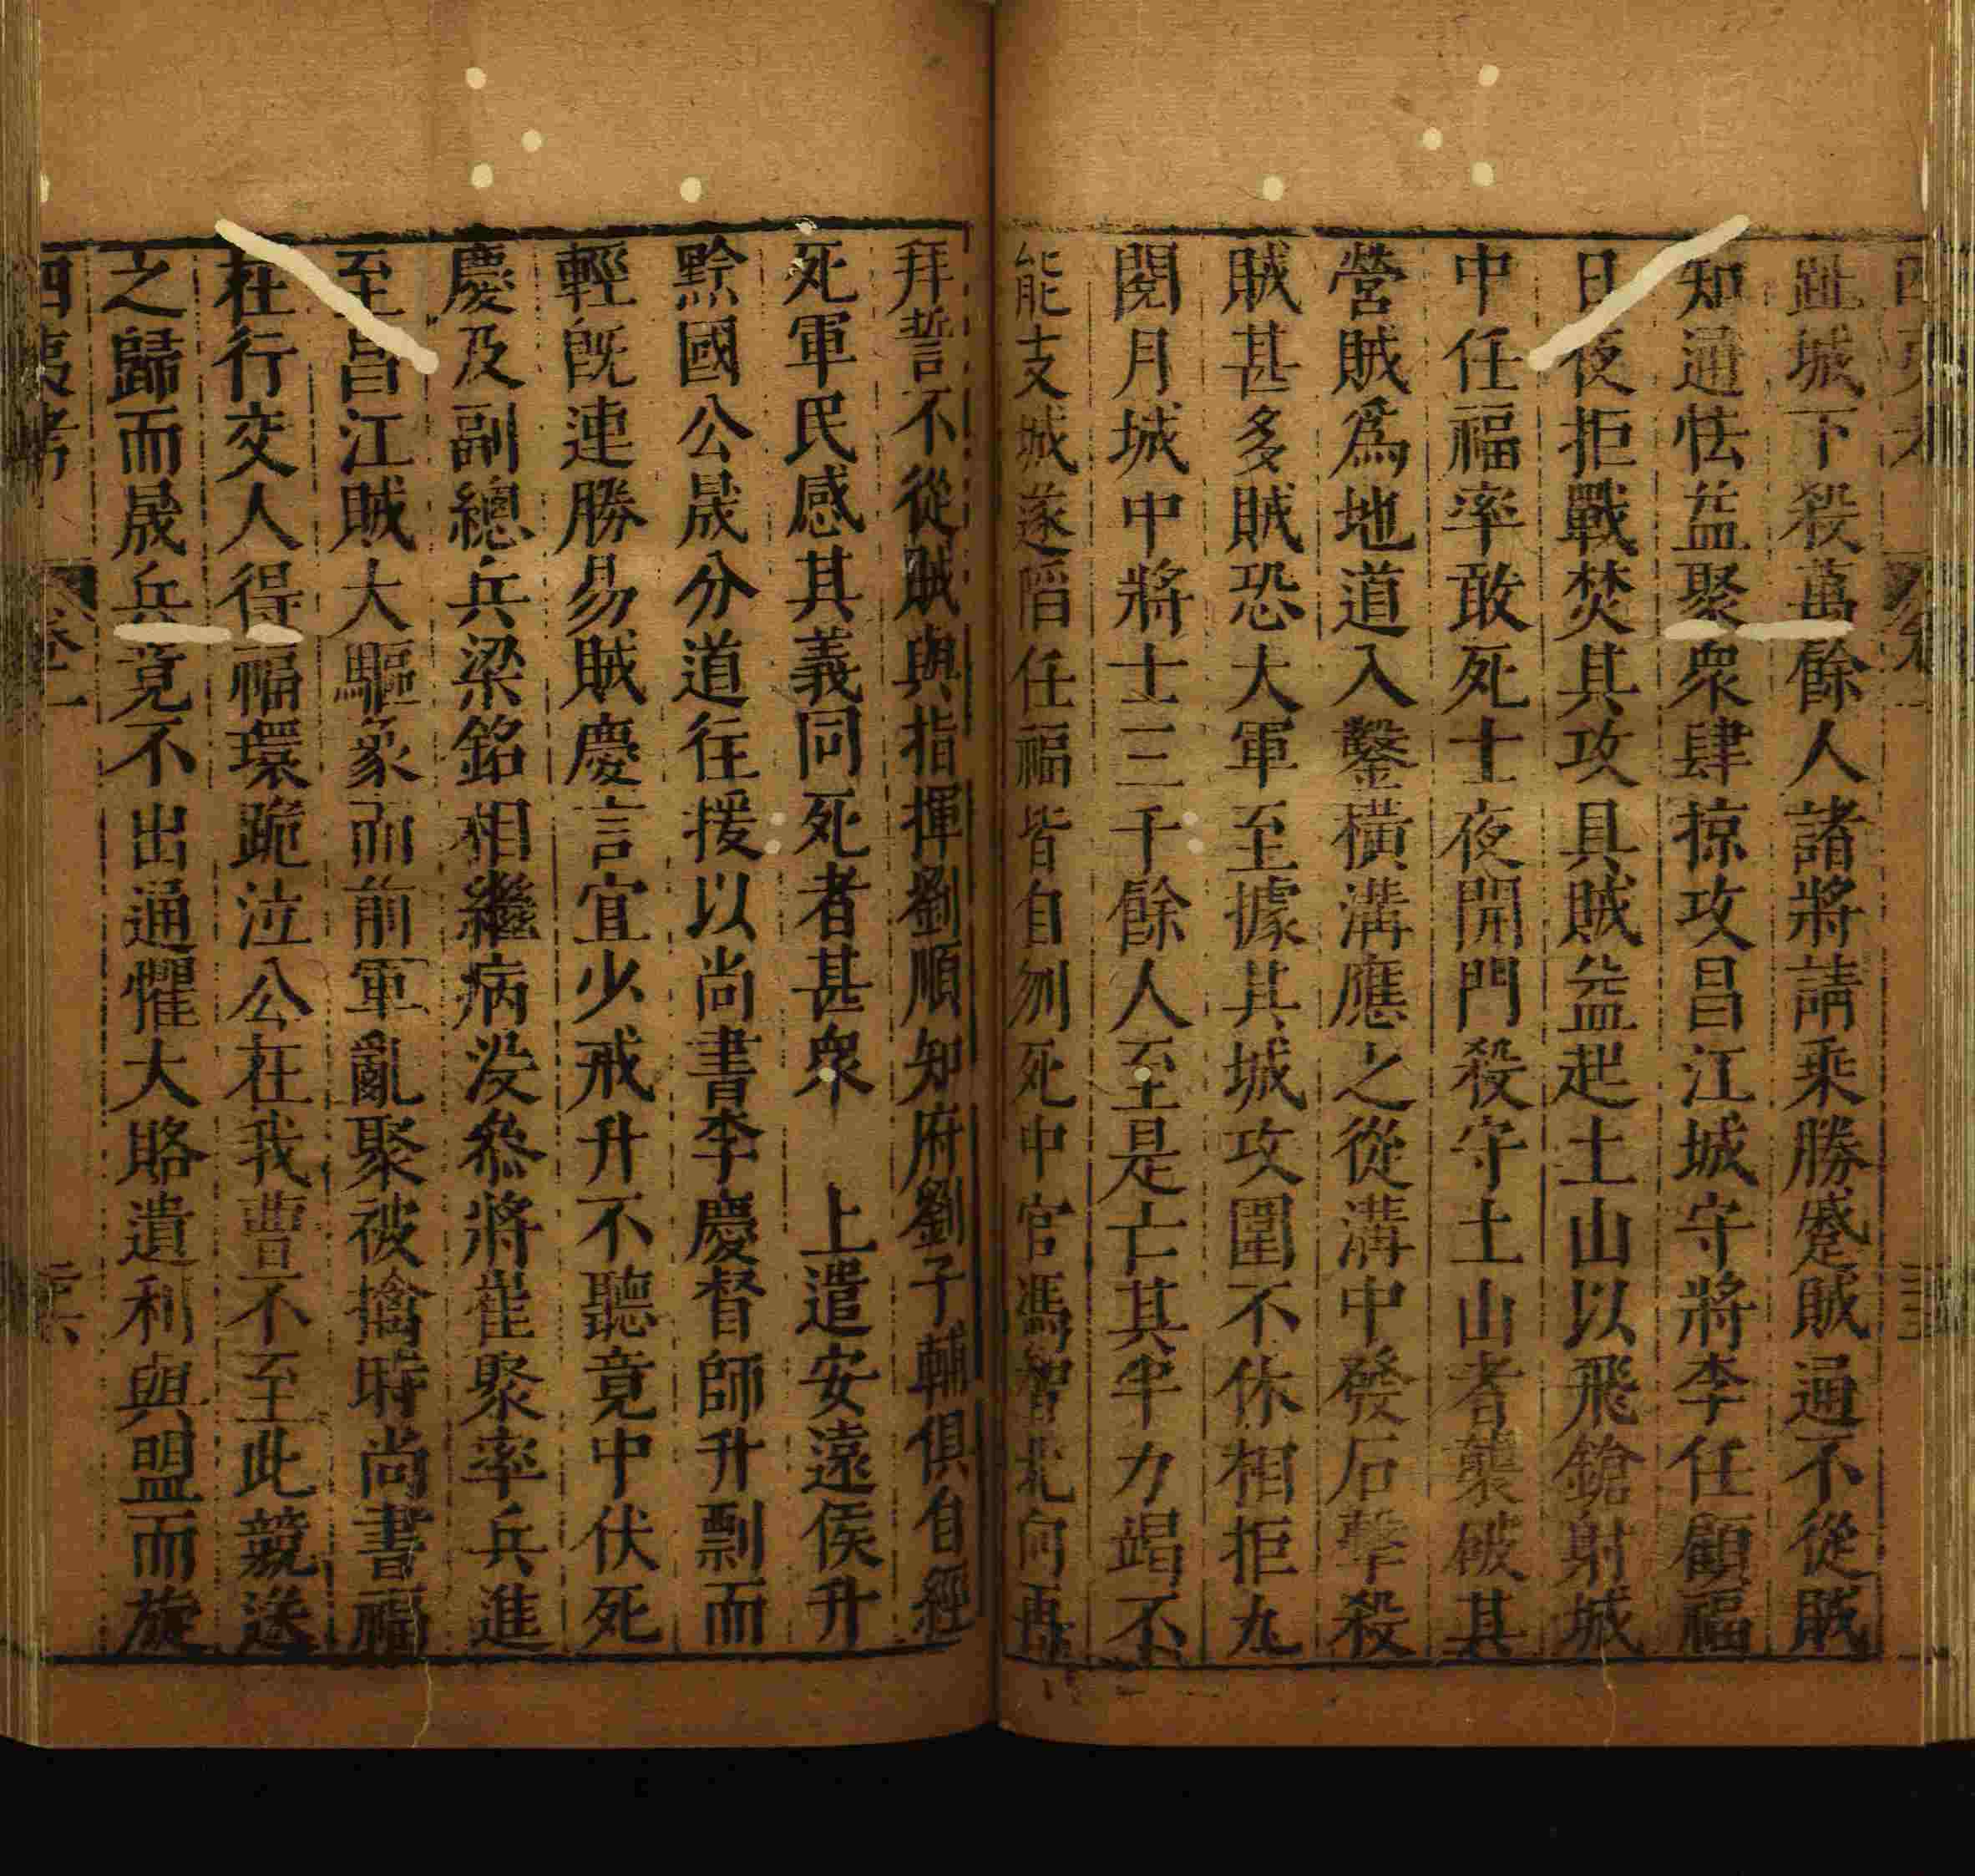 趾城下殺萬餘人諸將請乘勝蹙賊通不從賊
知通怯益聚衆肆掠攻昌江城守將李任顧福
日夜拒戰焚其攻具賊益起土山以飛鎗射城
中任福率敢死士夜開門殺守土山者襲破其
營賊爲地道入鑿橫溝應之從溝中發石擊殺
賊甚多賊恐大軍至據其城攻圍不休相拒九
閱月城中將士三千餘人至是亡其半力竭不
能支城遂陷任福皆自刎死中官馮智北向再
拜誓不從賊與指揮劉順知府劉子輔俱自經
死軍民感其義同死者甚衆 上遣安遠侯升
黔國公晟分道往援以尚書李慶督師升剽而
輕旣連勝易賊慶言宜少戒升不聽竟中伏死
慶及副總兵梁銘相繼病没叅將崔聚率兵進
至昌江賊大驅象而前軍亂聚被擒時尚書福
在行交人得福環跪泣公在我曹不至此競送
之歸而晟兵竟不出通懼大賂遺利與盟而旋
四夷考 卷一 三六